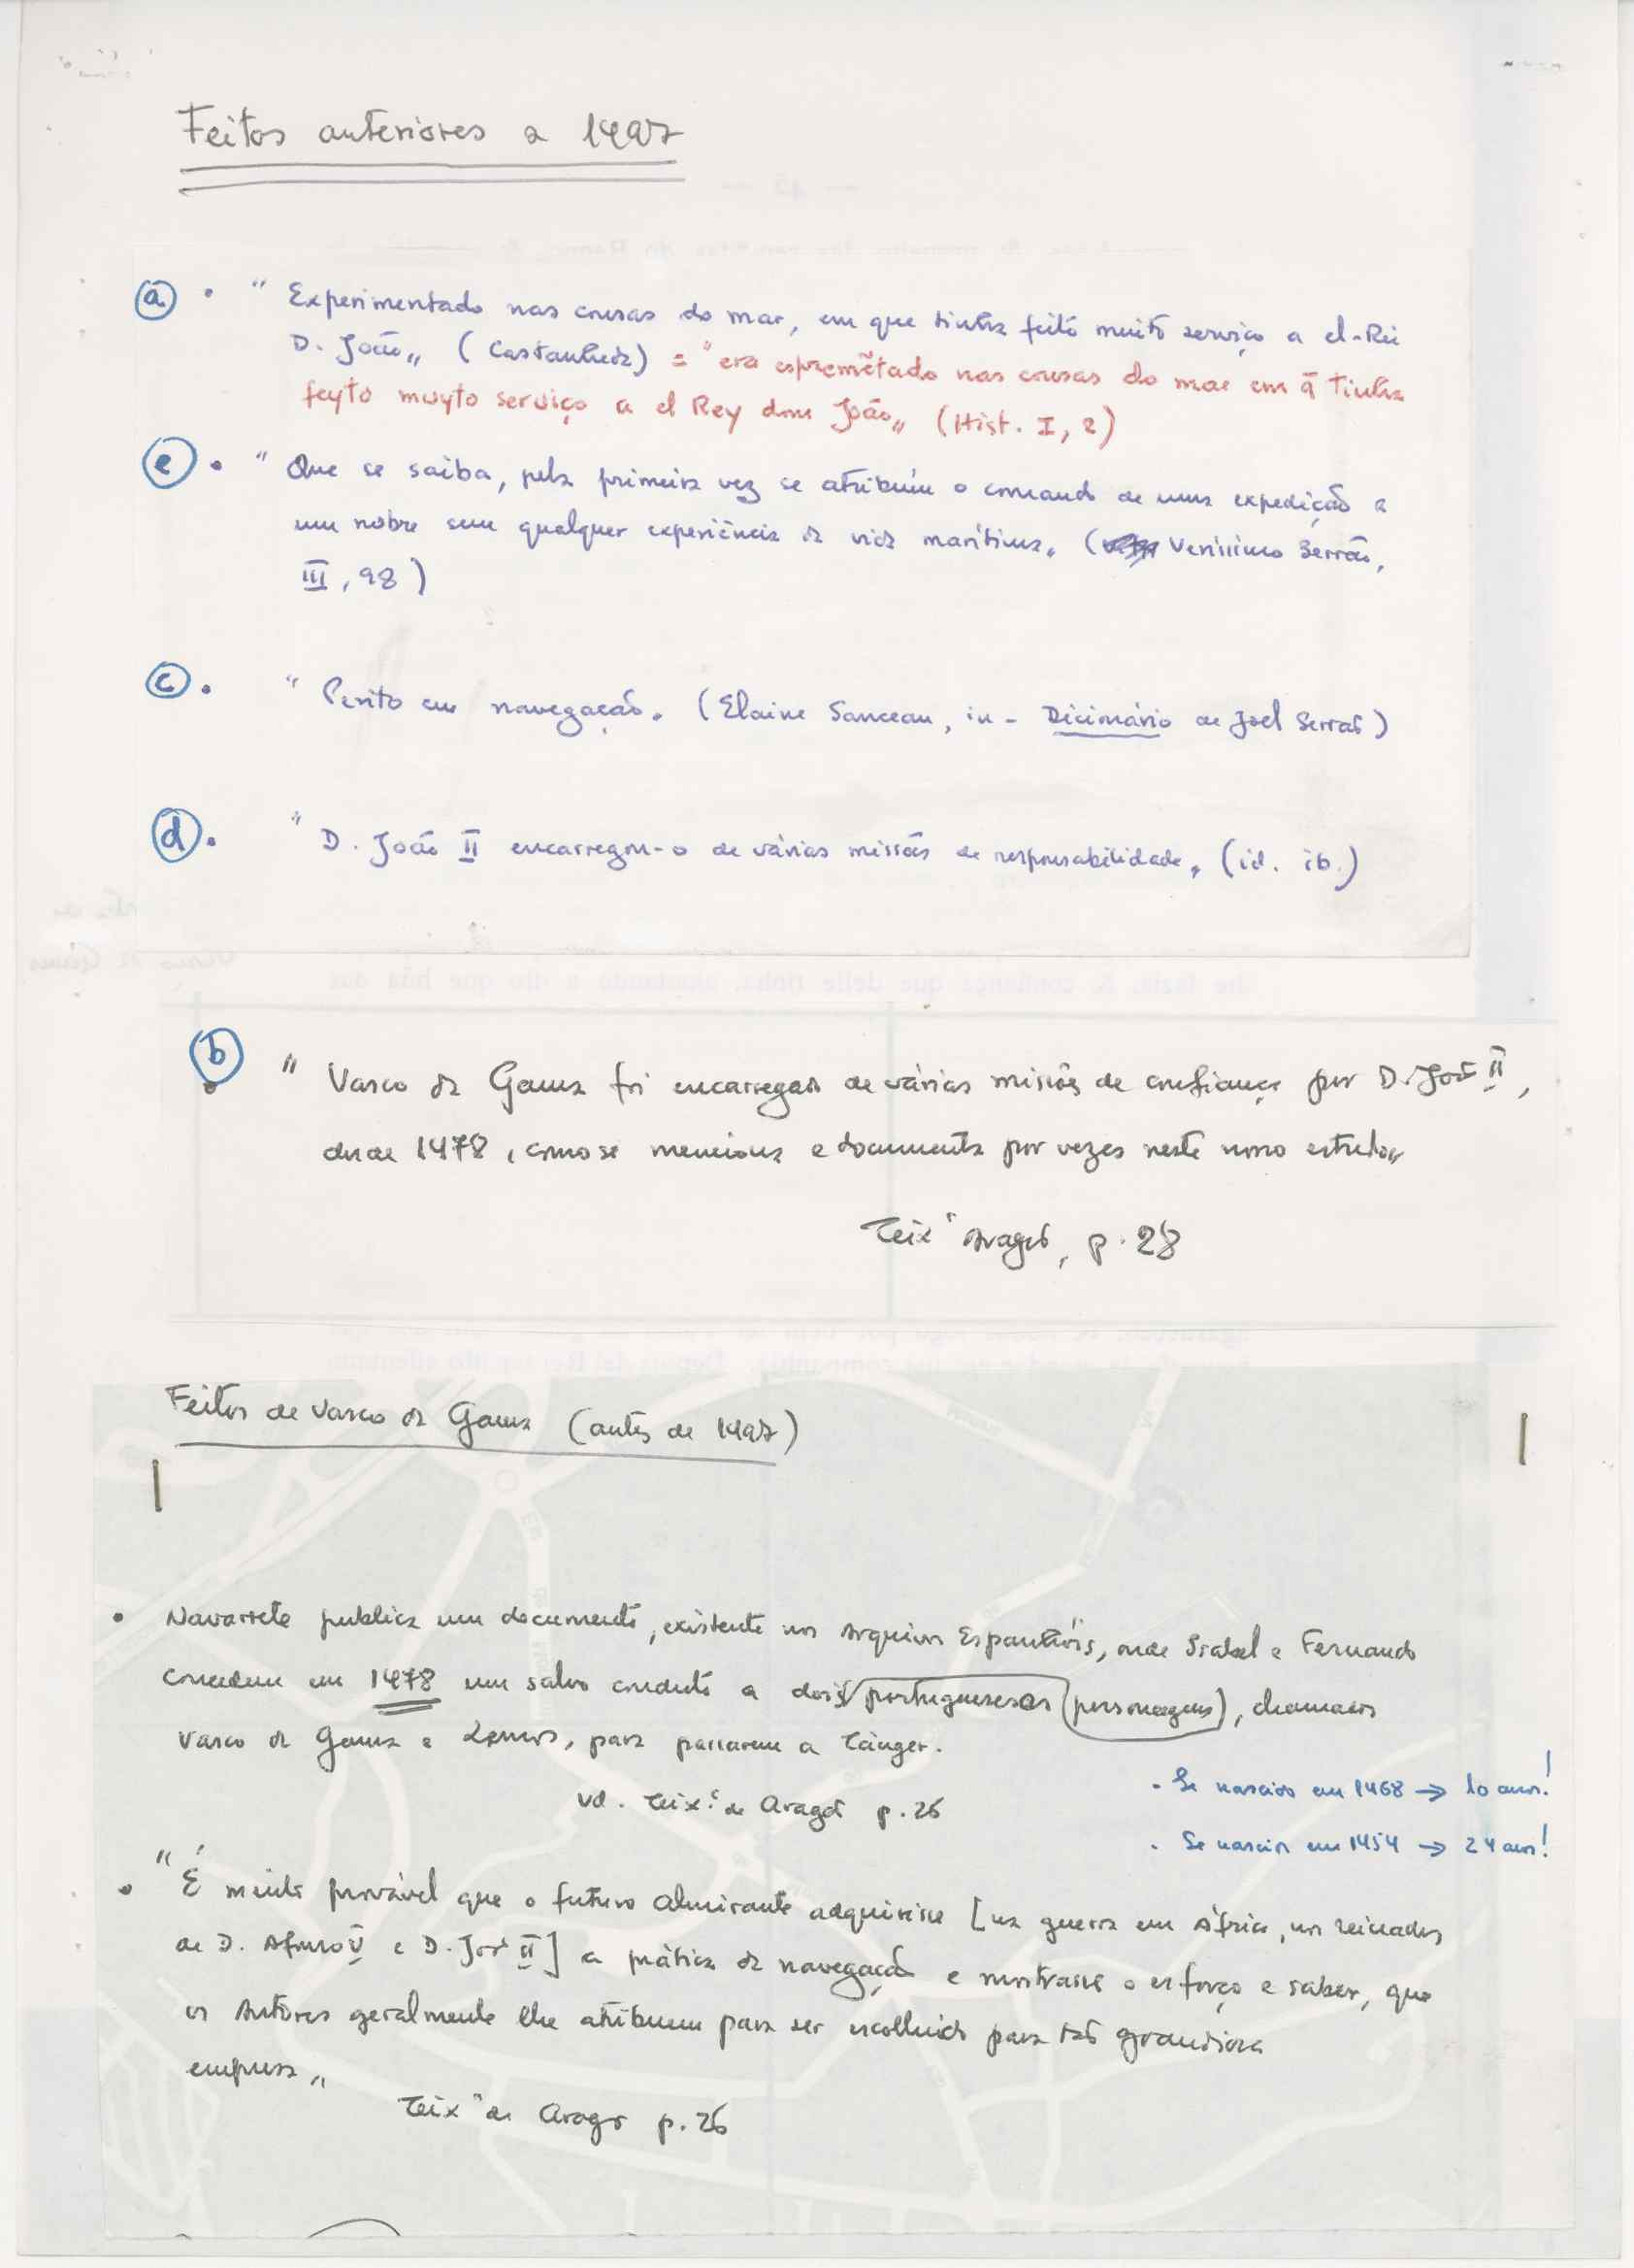 Feitos anteriores a 1497
(a) • " Experimentado nas cousas do mar, em que tinha feito muito serviço a el-Rei
D. João„ (Castanheda) = "era espremẽtado nas cousas do mar em q̃ tinha
feyto muyto serviço a el Rey dom João„ (Hist. I, 2)
(e) • " Que se saiba, pela primeira vez se atribuíu o comando de uma expedição a
um nobre sem qualquer experiência da vida marítima„ ( Veríssimo Serrão,
III, 98)
(c) • " Perito em navegação„ (Elaine Sanceau, in - Dicionário de Joel Serrão)
(d) • " D. João II encarregou-o de várias missões de responsabilidade„ (id. ib.)
(b) • " Vasco da Gama foi encarregado de várias missões de confiança por D. João II,
desde 1478, como se menciona e documenta por vezes neste nosso estudo„
Teixª Aragão, p. 28
Feitos de Vasco da Gama (antes de 1497)
• Navarrete publica um documento, existente nos Arquivos Espanhóis, onde Isabel e Fernando
concedem em 1478 um salvo conduto a dois portugueses (personagens), chamados
Vasco da Gama e Lemos, para passarem a Tânger.
vd. Teixª de Aragão p. 26
. Se nascido em 1468 → 10 anos!
. Se nascido em 1454 → 24 anos!
• " É muito provável que o futuro Almirante adquirisse [na guerra em África, nos reinados
de D. Afonso V e D. João II] a prática da navegação e mostrasse o esforço e saber, que
os Autores geralmente lhe atribuem para ser escolhido para tão grandiosa
empresa„
Teixª de Aragão p. 26